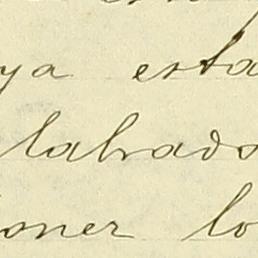 ya esta
labrado
oner lo